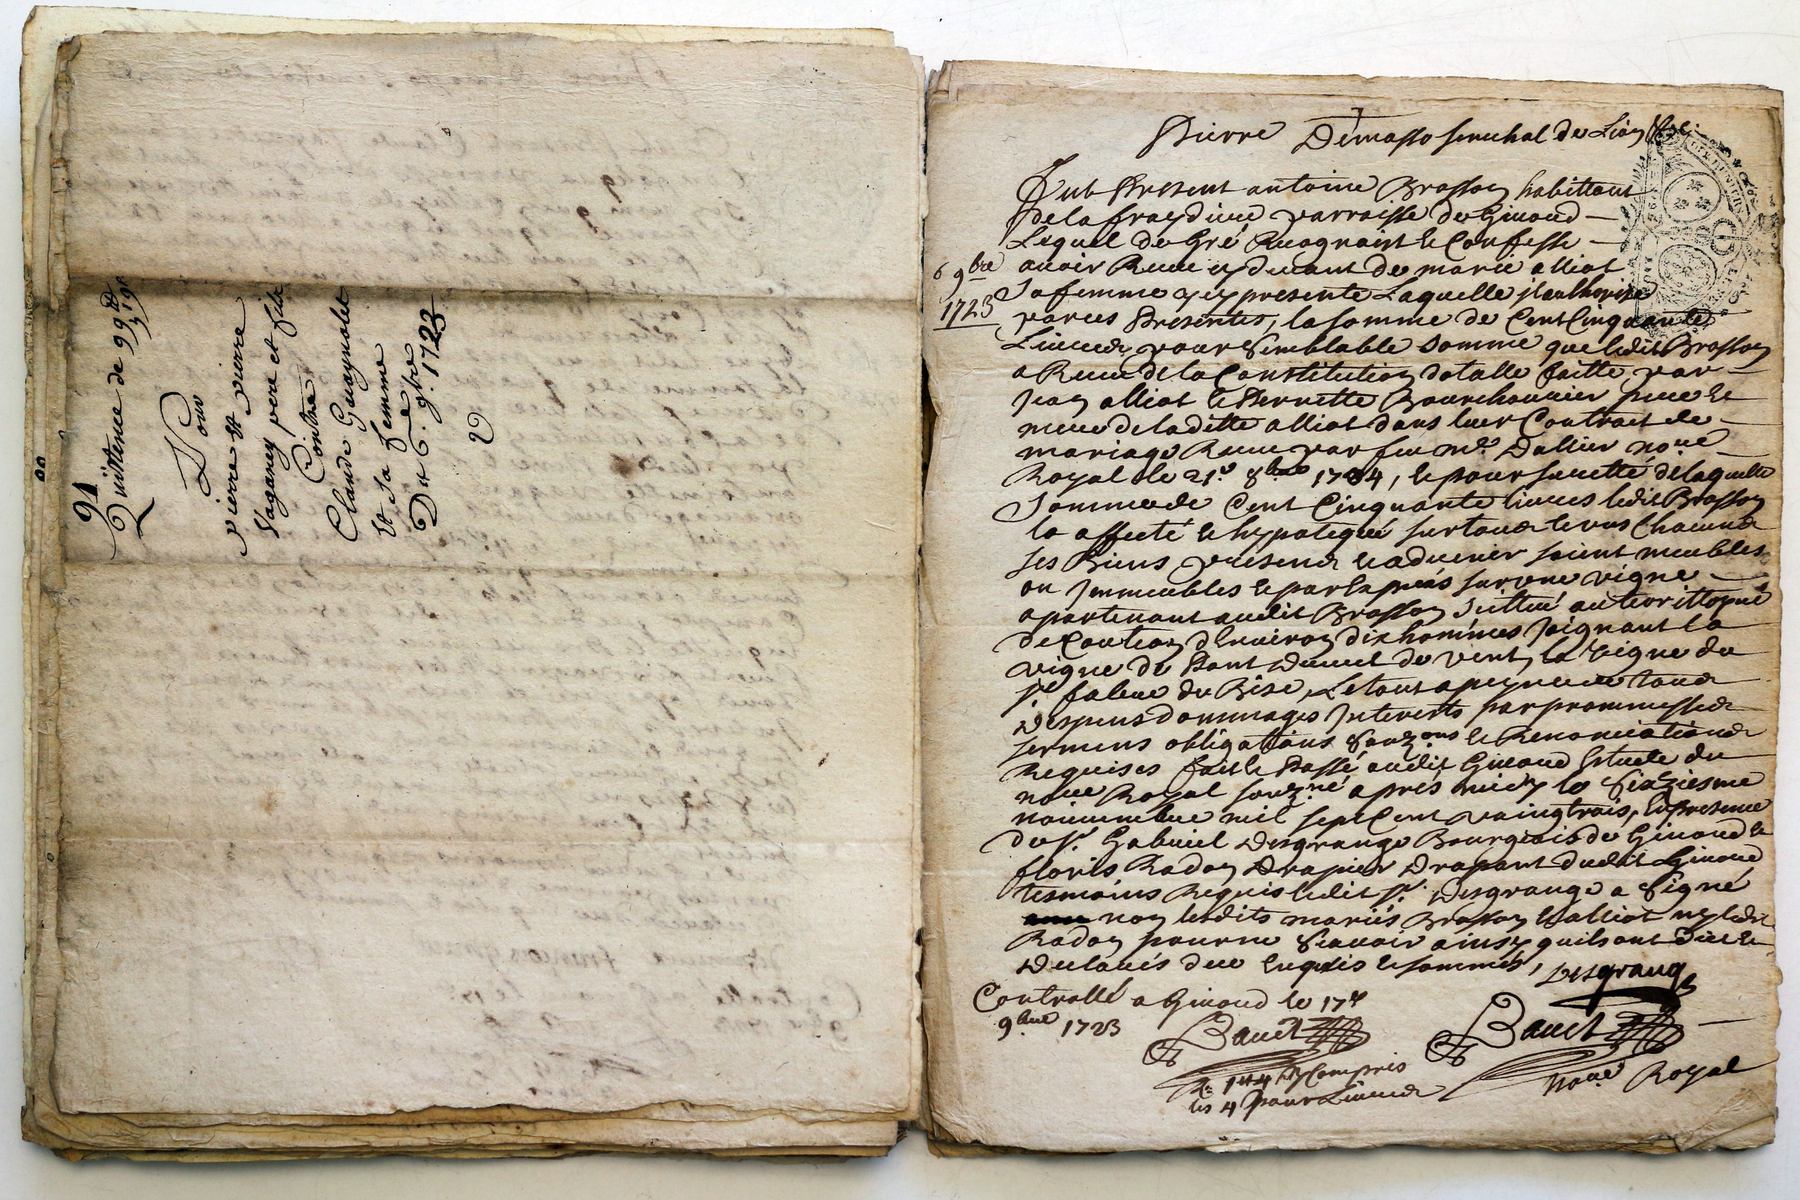 94
Quittence de 99 ₶ 19 s
Pour
pierre et pierre
Paganey pere et fils
Contre
Claude Guaynolet
et sa femme
Du 6e 9bre 1723
Pierre Demasso senechal de Lion &c.
Fut Present antoine Brosson habittant
de la fraydiere parroisse de Giuoud
Lequel de Gré Recognaist et Confesse
6 9bre 1723
auoir Receu cy deuant de marie alliot
Sa femme y cy presente Laquelle jl authorise
par ces Presentes, la somme de Cent Cinquante
Liures pour Semblable Somme que ledit Brosson
a Receu de la Constitution dotalle faitte par
Jean alliot et Pernette Bourchounier pere et
mere de la ditte alliot dans leur Contrait de
mariage Receu par feu me. Dallier nore
Royal le 21e 8bre 1704, et pour surette de laquelle
Somme de Cent Cinquante liures ledit Brosson
la affecté et hypotequé sur tous et vns Chacuns
ses Biens presens et aduenir soient meubles
ou Jmmeubles et par Exprés sur vne vigne
apartenant audit Brosson Scittué au territtoyre
de Coution d'Enuiron dix hommes joignant la
vigne de Pont Dumel de vent, la vigne du
sr. faleue de Bise, Le tout a peyne de tous
Despens dommages Jnterests par prommesses
sermens obligations Soubz.ons et Renonciations
Requises fait et Passé audit Giuoud Estude du
nore Royal soubz.né aprés midy le Sixziesme
nouembre mil sept Cent vaingtrois, En presence
du sr. Gabriel Desgrange Bourgeois de Giuoud et
floris Radon Drapier Drapant dudit Giuoud
tesmoins Requis ledit sr. Desgrange a Signé
non lesdits mariés Brosson et alliot ny ledit
Radon pour ne Scauoir ainsy quils ont dict et
Declarés de ce Enquis et sommés, Desgrange
Controllé a Giuoud le 17e
9bre 1723
Bauet Bauet
nore Royal
R. 14 s y Compris
les 4 pour Liures